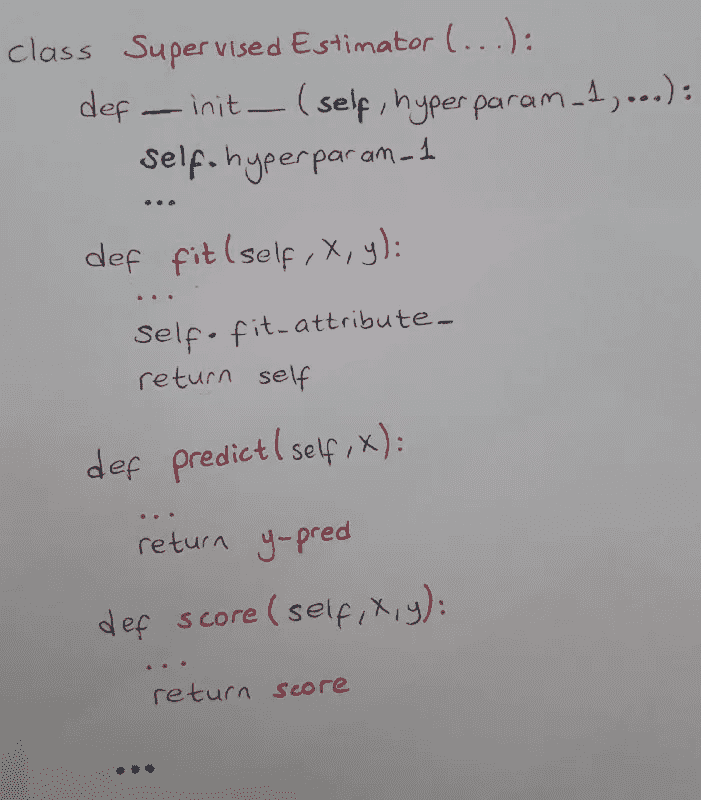 class Supervised Estimator (...):
def __init__ (self, hyperparam_1, ...):
self.hyperparam_1
...
def fit(self, X, y):
...
self.fit_attribute_
return self
def predict(self, X):
...
return y-pred
def score(self, X, y):
...
return score
...